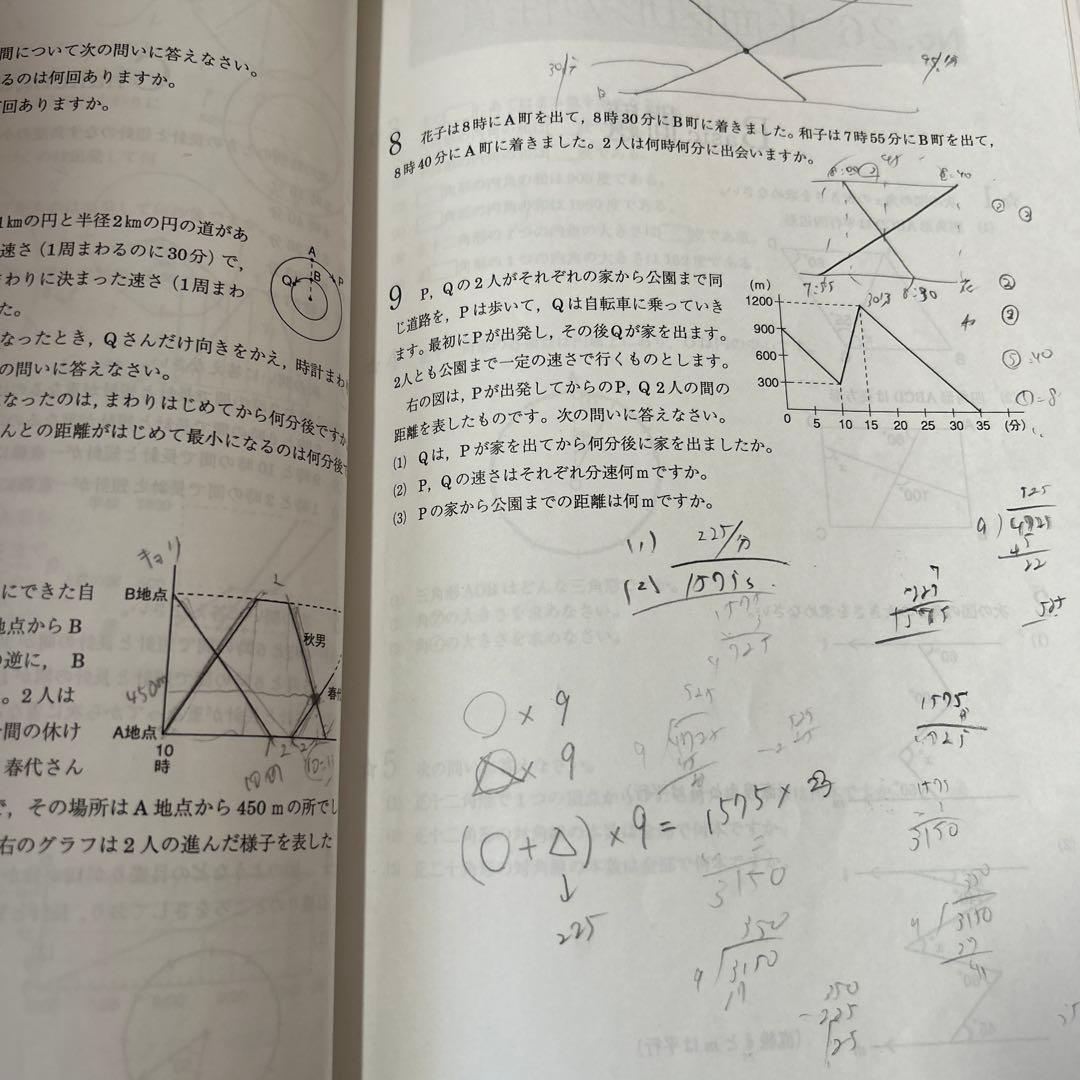 間について次の問いに答えなさい。
るのは何回ありますか。
回ありますか。
1kmの円と半径2kmの円の道があ
速さ(1周まわるのに30分)で,
まわりに決まった速さ(1周まわ
た。
なったとき,Qさんだけ向きをかえ,時計まわ
の問いに答えなさい。
なったのは,まわりはじめてから何分後ですか
んとの距離がはじめて最小になるのは何分後
A
B
Q
P
にできた自
地点からB
の逆に, B
。2人は
間の休け
春代さん
で,その場所はA地点から450mの所でし
右のグラフは2人の進んだ様子を表した
キョリ
B地点
秋男
春代
450m
A地点
10
時
B
8 花子は8時にA町を出て,8時30分にB町に着きました。和子は7時55分にB町を出て,
8時40分にA町に着きました。2人は何時何分に出会いますか。
8:40
7:55
8:30
花
和
9 P,Qの2人がそれぞれの家から公園まで同
じ道路を,Pは歩いて,Qは自転車に乗っていき
ます。最初にPが出発し,その後Qが家を出ます。
2人とも公園まで一定の速さで行くものとします。
右の図は,Pが出発してからのP,Q2人の間の
距離を表したものです。次の問いに答えなさい。
(1) Qは,Pが家を出てから何分後に家を出ましたか。
(2) P,Qの速さはそれぞれ分速何mですか。
(3) Pの家から公園までの距離は何mですか。
(m)
1200
900
600
300
0 5 10 15 20 25 30 35 (分)
(1) 225/分
(2) 1575
525
9)4725
45
22
525
1575
4725
○×9
△×9
(○+△)×9=1575×
↓
225
3150
350
9)3150
1575
3150
350
9)3150
27
350
-225
125